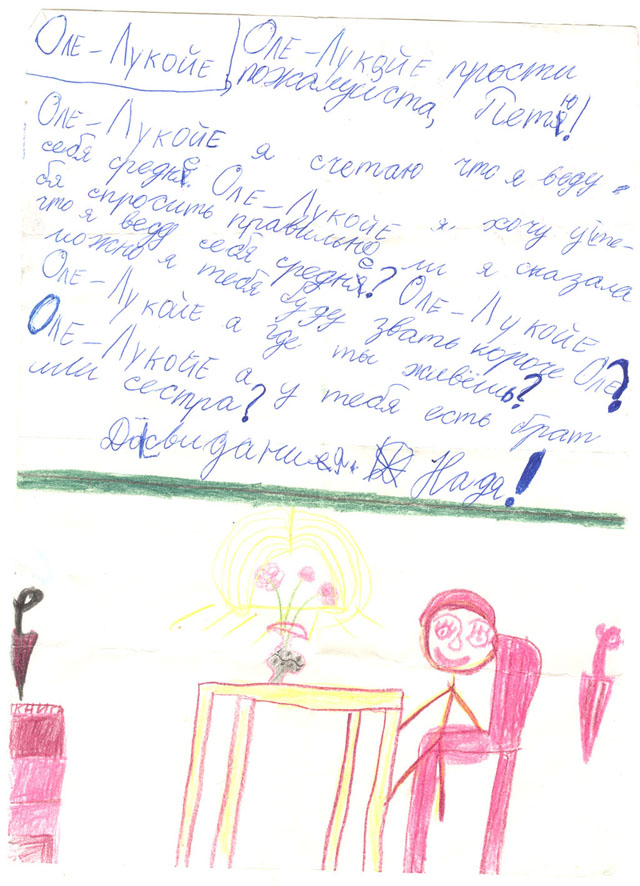 Оле-Лукойе, Оле-Лукойе прости
пожалуйста, Петю!
Оле-Лукойе я счетаю что я веду
себя средне. Оле-Лукойе я хочу у те-
бя спросить правильно ли я сказала
что я веду себя средне? Оле-Лукойе
можно я тебя буду звать короче Оле?
Оле-Лукойе а где ты живёшь?
Оле-Лукойе а у тебя есть брат
или сестра?
Досвидания. Надя!
КНИГА